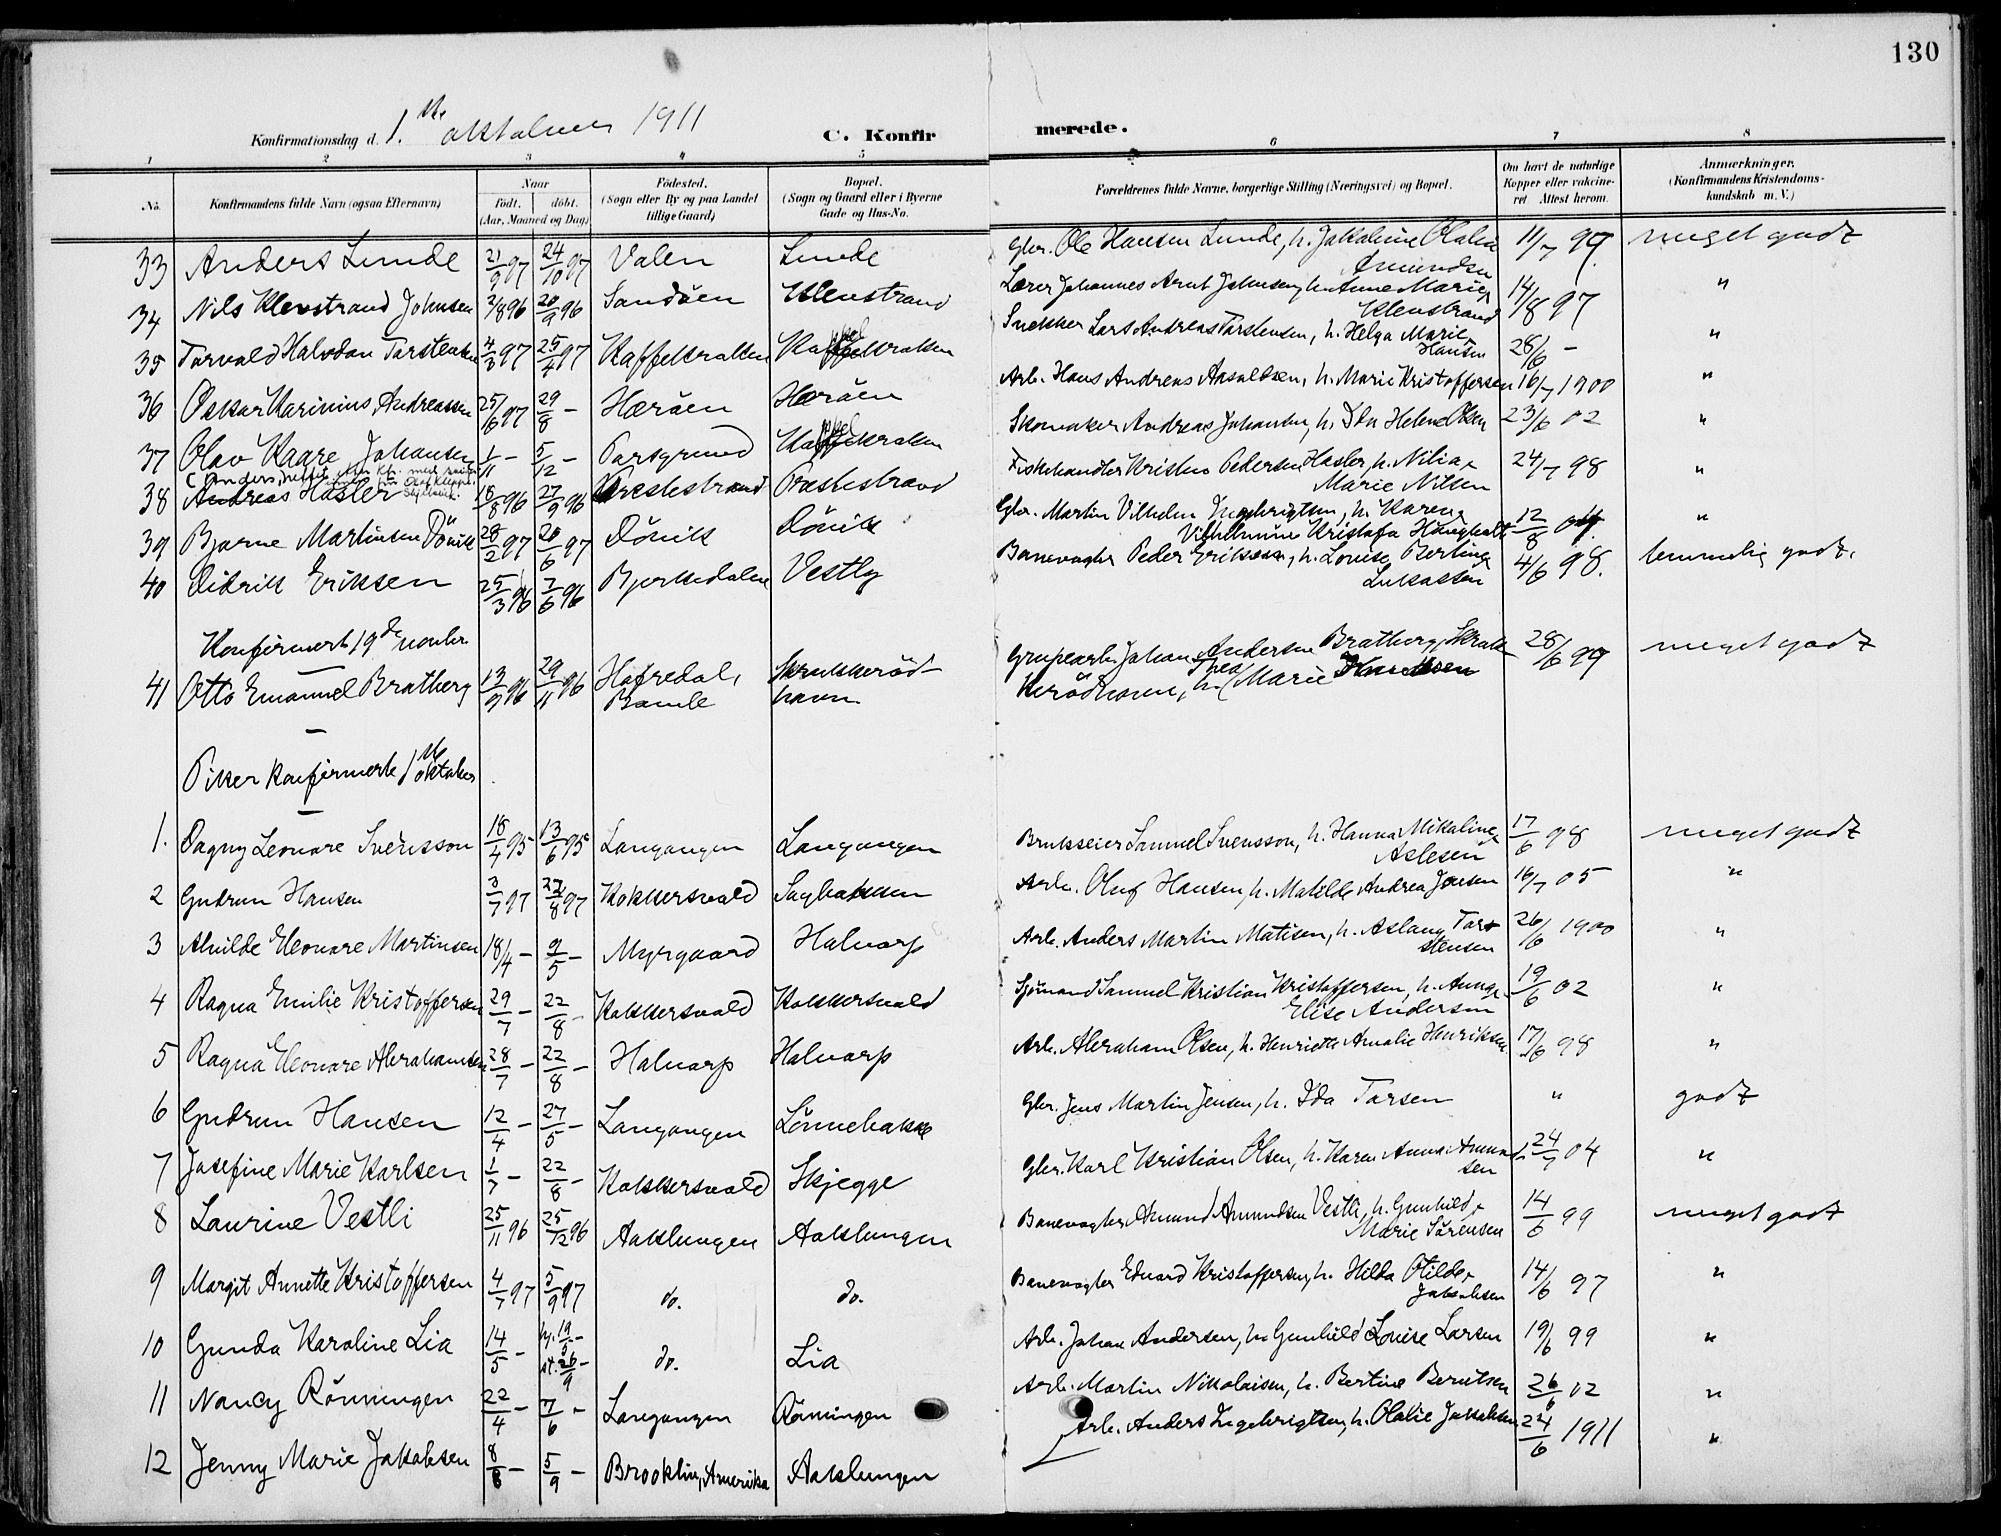 130
Konfirmationsdag d. 1.ste oktober 1911
C. Konfir
merede.
1 2 3 4 5 6 7 8
No. Konfirmandens fulde Navn (ogsaa Efternavn) Naar født. døbt. (Aar, Maaned og Dag) Fødested. (Sogn eller By og paa Landet tillige Gaard) Bopæl. (Sogn og Gaard eller i Byerne Gade og Hus-No. Forældrenes fulde Navne, borgerlige Stilling (Næringsvei) og Bopæl. Om havt de naturlige Kopper eller vakcineret Attest herom. Anmærkninger. (Konfirmandens Kristendomskundskab m. V.)
33 Anders Lunde 21/9 97 24/10 97 Valen Lunde Gbr. Ole Hansen Lunde, h. Jakobine Olalia Amundsen 11/7 99 meget godt
34 Nils Klevstrand Johnsen 2/8 96 20/9 96 Sandöen Klevstrand Lærer Johannes Arnt Johnsen, h. Anne Marie Klevstrand 14/8 97 "
35 Torvald Halvdan Torstensen 4/3 97 25/4 97 Kaffekratten Kappelkratten Snekker Lars Andreas Torstensen, h. Helga Marie Hansen 28/6 - "
36 Oskar Karinius Andreassen 25/6 97 29/8 - Heröen Heröen Arb. Hans Andreas Aasoldsen, h. Marie Kristoffersen 16/7 1900 "
37 Olav Kaare Johansen 1/11 - 5/12 - Porsgrund Kappelkratten Skomaker Andreas Johansen, h. Ida Helene Olsen 23/6 02 "
(Anders, rettet efter
38 Andreas Hasler 18/8 96 27/9 96 Prestestrand Prestestrand Fiskehandler Kristen Pedersen Hasler, h. Nilia Marie Nilsen 24/7 98 "
39 Bjarne Martinsen Dövik 28/2 97 20/6 97 Dövik Dövik Gbr. Martin Vilhelm Ingebrigtsen, h. Karen Vilhelmine Kristofa Haugholt 12/8 04 "
40 Didrik Eriksen 25/3 96 7/6 96 Bjerkedalen Vestly Banevogter Peder Eriksen, h. Louise Bertine Lukassen 4/6 98. temmelig godt.
Konfirmert 19de novbr.
41 Otto Emanuel Bratberg 13/9 96 29/11 96 Hafredal, Bamle Skrukkerödhavn Grubearb. Johan Andersen Bratberg, Skrukkerödhavn, h. Thea Marie 28/6 99 meget godt
Piker konfirmert 1ste oktober
1. Dagny Leonore Svensson 18/4 95 13/6 95 Langangen Langangen Brukseier Samuel Svensson, h. Hanna Mikaline Aslesen 17/6 98 meget godt
2 Gudrun Hansen 3/7 97 22/8 97 Kokkersvold Sagbakken Arb. Oluf Hansen, h. Matilde Andrea Jensen 16/7 05 "
3 Alvilde Eleonore Martinsen 18/4 - 9/5 - Myrgaard Halvarp Arb. Anders Martin Matisen, h. Aslaug Torstensen 26/6 1900 "
4 Ragna Emilie Kristoffersen 29/7 - 22/8 - Kokkersvold Kokkersvold Sjömand Samuel Kristian Kristoffersen, h. Anna Elise Andersen 19/6 02 "
5 Ragna Eleonore Abrahamsen 28/7 - 22/8 - Halvarp Halvarp Arb. Abraham Olsen, h. Henriette Amalie Henriksen 17/6 98 "
6 Gudrun Hansen 12/4 - 27/5 - Langangen Lönnebakke Gbr. Jens Martin Jensen, h. Ida Torsen " godt
7 Josefine Marie Karlsen 1/7 - 22/8 - Kokkersvold Skjegge Gbr. Karl Kristian Olsen, h. Karen Anna Amundsen 24/7 04 "
8 Laurine Vestli 25/11 96 25/12 96 Aaklungen Aaklungen Banevogter Amund Amundsen Vestli, h. Gunhild Marie Sörensen 14/6 99 meget godt
9 Margit Annette Kristoffersen 4/7 97 5/9 97 do. do. Banevogter Edvard Kristoffersen, h. Hilda Otilde Jakobsen 14/6 97 "
10 Gunda Karoline Lia 14/5 - hj. 19/5 - st. 26/9 - do. Lia Arb. Johan Andersen, h. Gunhild Louise Larsen 19/6 99 "
11 Nancy Rönningen 22/4 - 7/6 - Langangen Rönningen Arb. Martin Nikolaisen, h. Bertine Berntsen 26/6 02 "
12 Jenny Marie Jakobsen 8/8 - 5/9 - Brooklin, Amerika Aaklungen Arb. Anders Ingebrigtsen, h. Olalie Jakobsen 24/6 1911 "